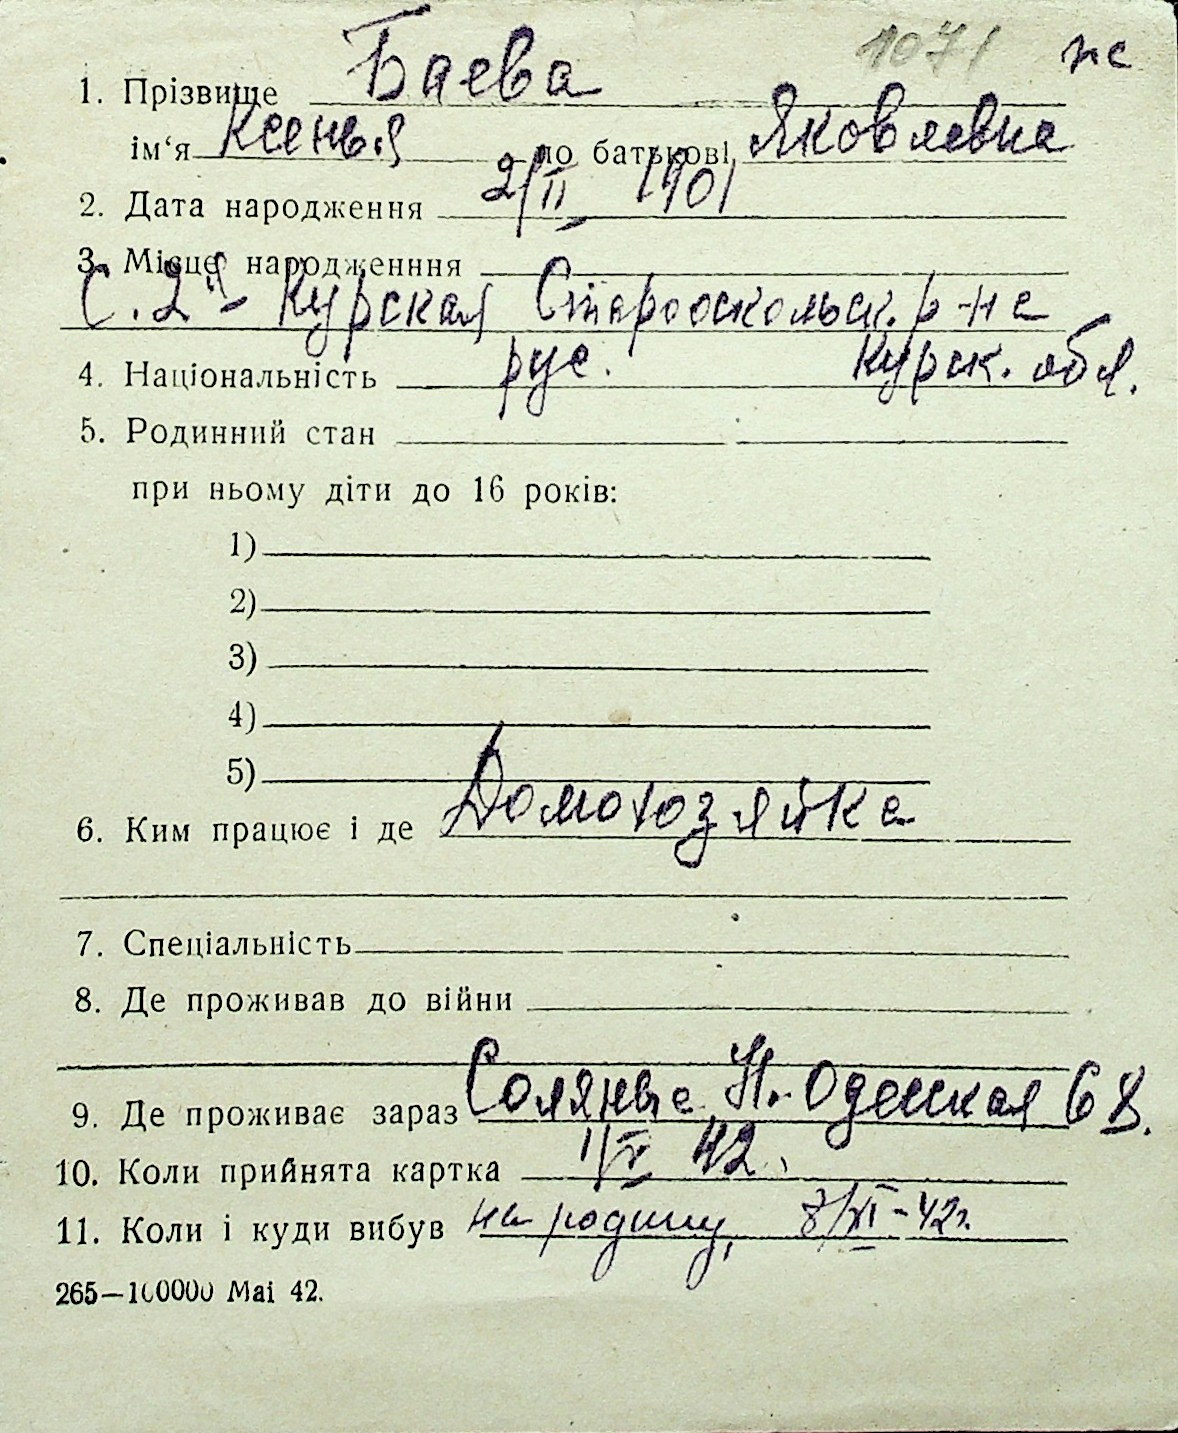 1071 ж
1. Прізвище Баева
ім‘я Ксенья по батькові Яковлевна
2. Дата народження 2/II 1901
3. Місце народженння
С. 2я - Курская Старооскольск. р-на
4. Національність рус. Курск. обл.
5. Родинний стан
при ньому діти до 16 років:
1)
2)
3)
4)
5)
6. Ким працює і де Домохозяйка
7. Спеціальність
8. Де проживав до війни
9. Де проживає зараз Соляные Н. Одесская 68.
10. Коли прийнята картка 1/V 42.
11. Коли і куди вибув на родину, 8/XI-42г.
265—100000 Mai 42.